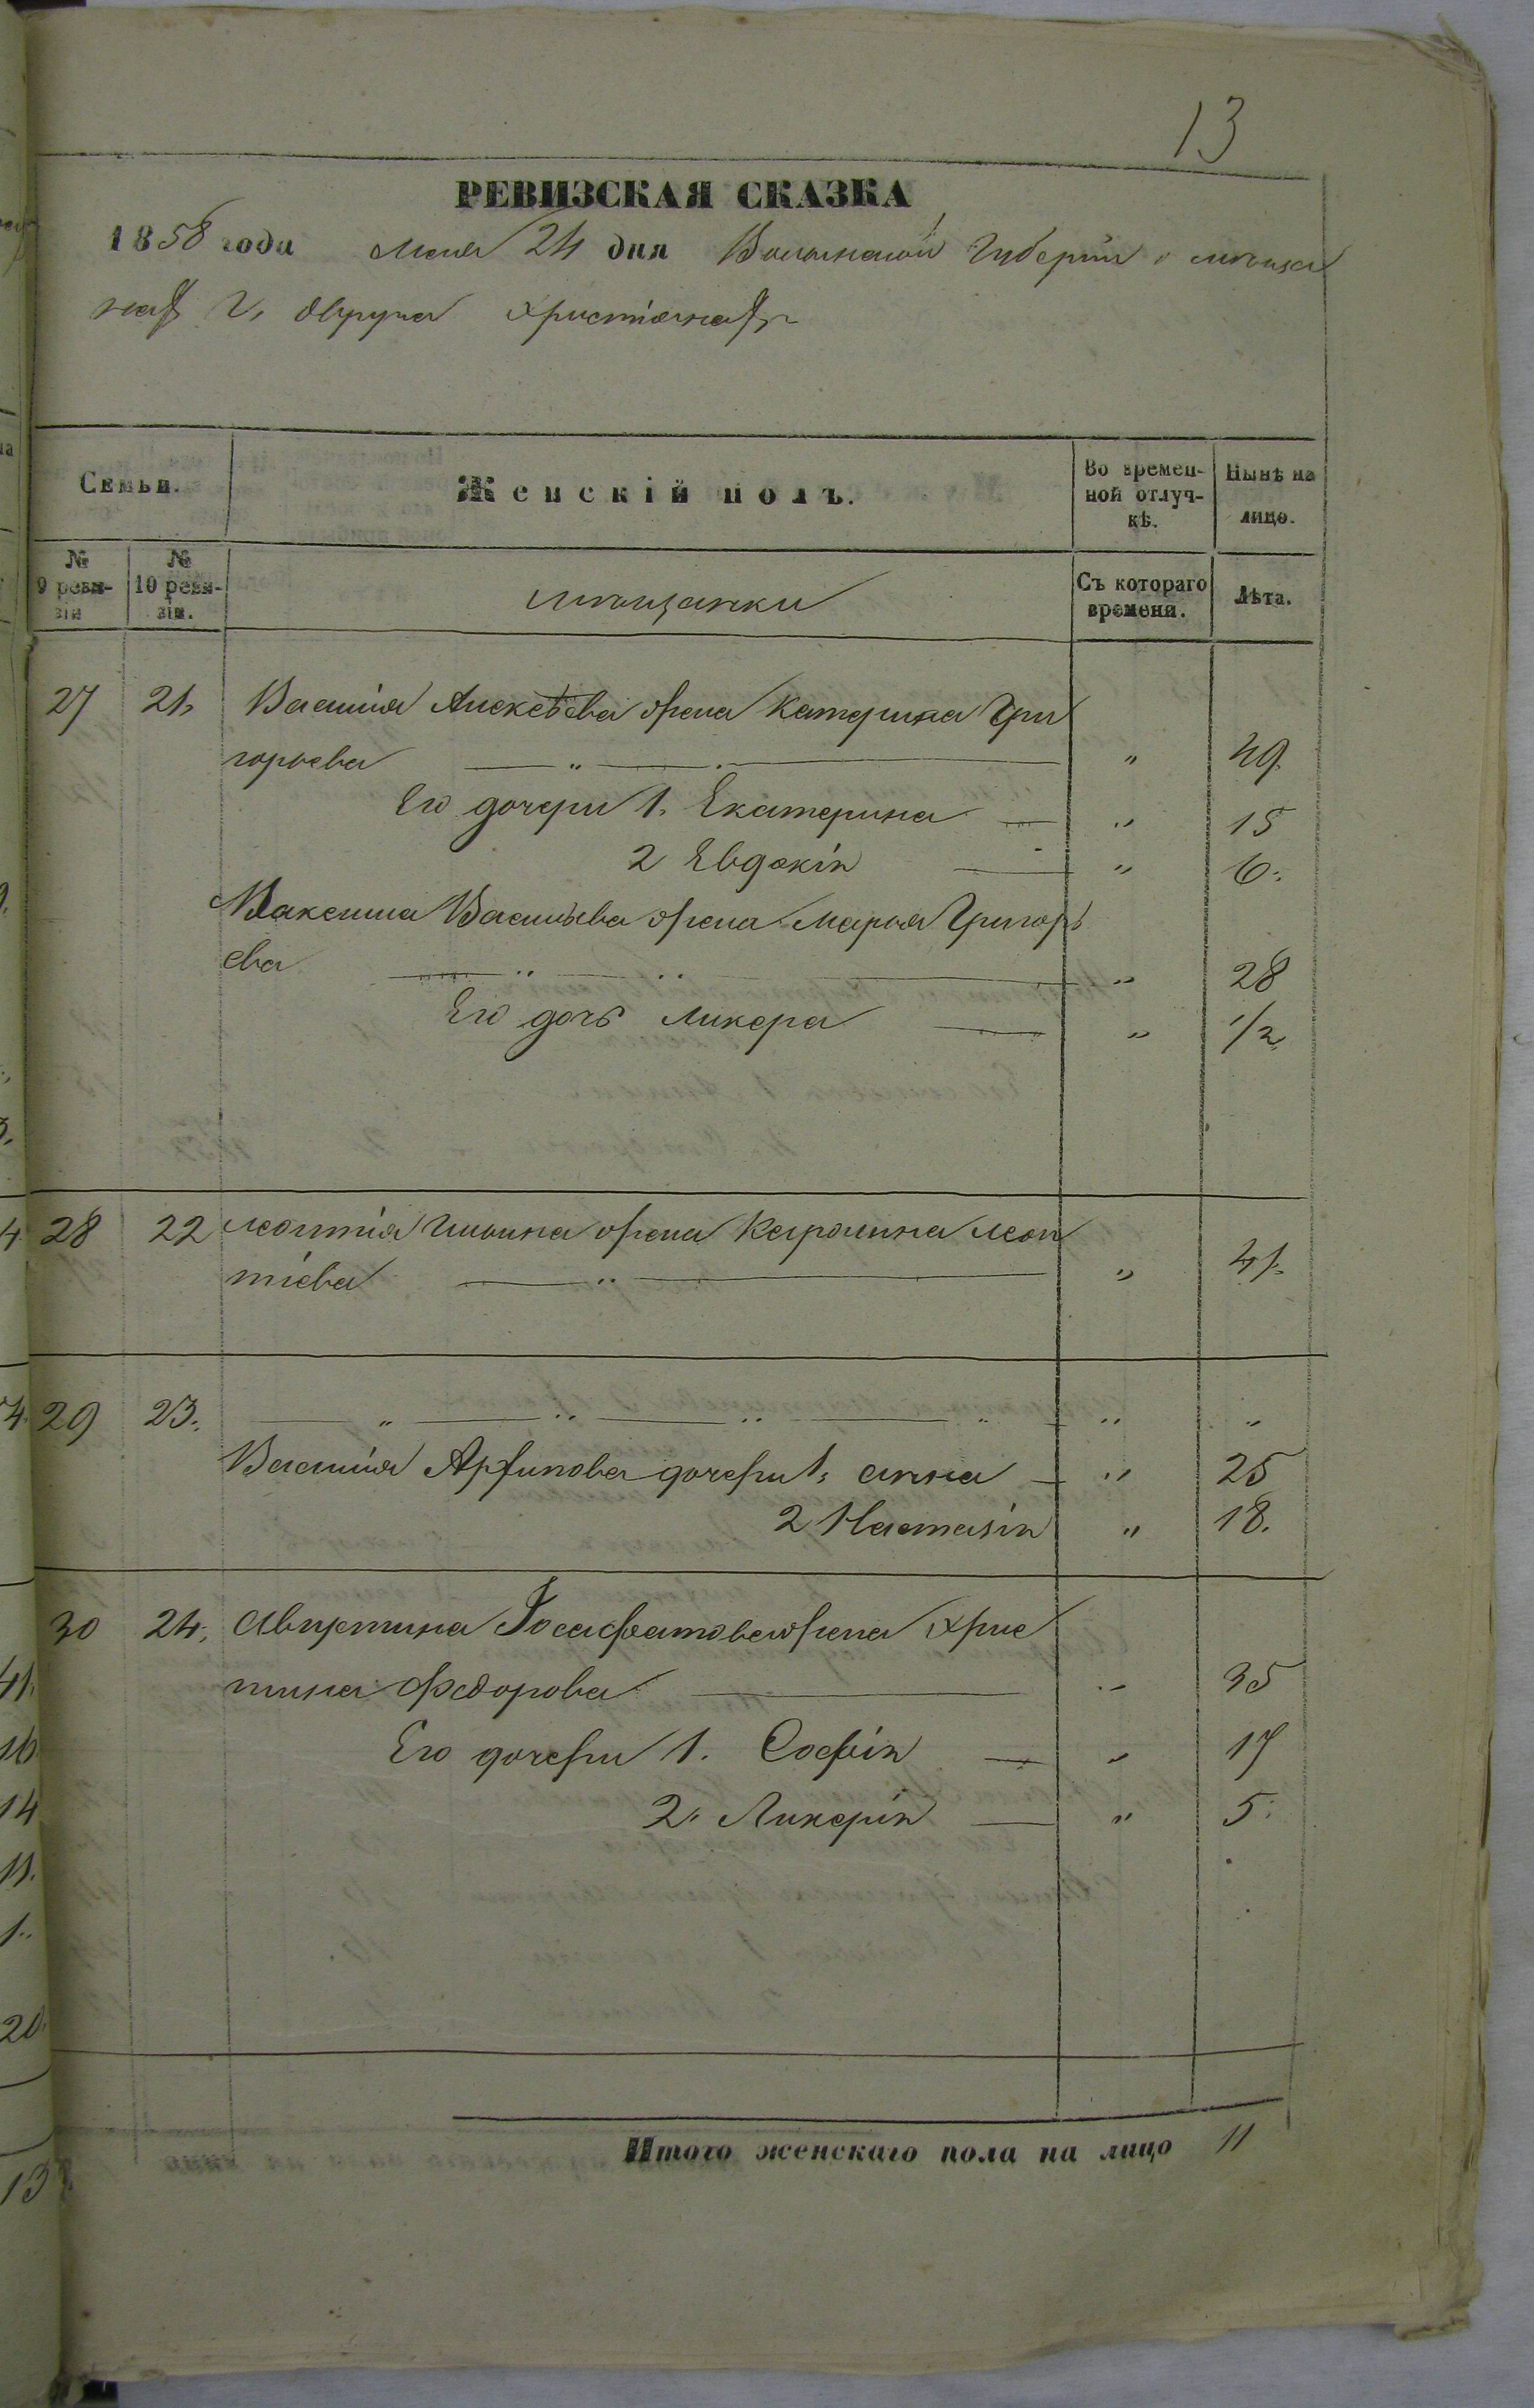 13
РЕВИЗСКАЯ СКАЗКА
1858 года Мая 24 дня Волынской Губерніи о мѣщан
нахъ г. Овруча христіанахъ
Семьи.
Женскій полъ.
Во времен-
ной отлуч-
кѣ.
Нынѣ на
лицо.
№
9 реви-
зіи
№
10 реви-
зіи.
мѣщанки
Съ котораго
времени.
Лѣта.
27 21, Василія Алексѣева жена Катерина Гри
горьева " 49.
Его дочери 1. Екатерина " 15
2 Евдокія " 6.
Максима Васильева жена Марья Григорь
ева " 28
Его дочь Ликера " 1/2
28 22 Леонтія Ильина жена Каролина Леон
тіева " 41.
29 23. " " " " " "
Василія дочери 1, Анна " 25
2 Настазія " 18.
30 24. Августина Іосафатова жена Хрис
тина Федорова " 35
Его дочери 1. Софія " 17
2. Ликерія " 5.
Итого женскаго пола на лицо 11